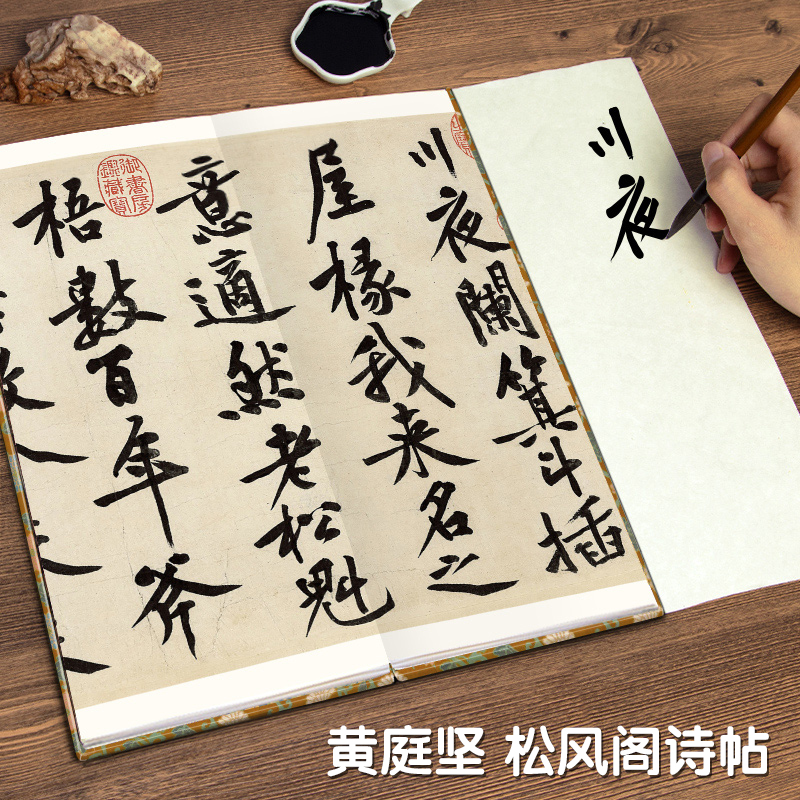 川夜闌箕斗插
屋椽我来名之
意適然老松魁
梧數百年斧
川夜
御書房鑑藏寶
黄庭坚 松风阁诗帖